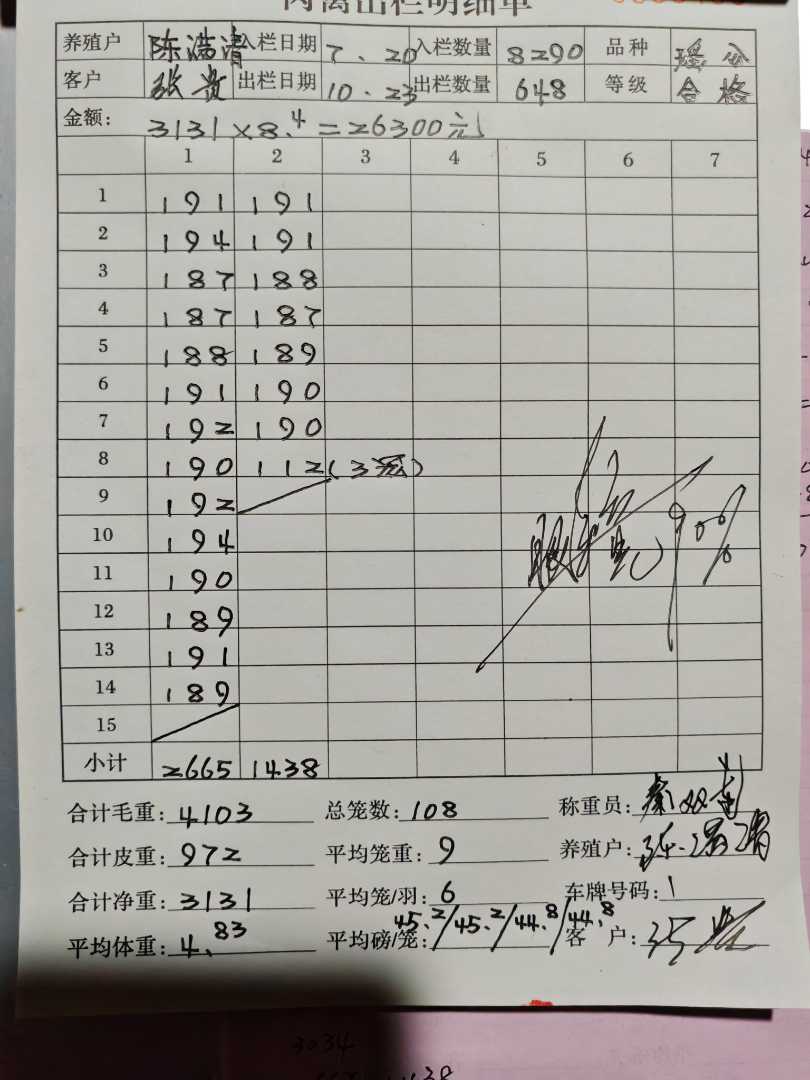 肉禽出栏明细单
养殖户 陈浩清 入栏日期 7.20 入栏数量 8290 品种 瑶公
客户 张贵 出栏日期 10.23 出栏数量 648 等级 合格
金额: 3131×8.4=26300元
1 2 3 4 5 6 7
1 191 191
2 194 191
3 187 188
4 187 187
5 188 189
6 191 190
7 192 190
8 190 112(3笼)
9 192
10 194
11 190
12 189
13 191
14 189
15
90%
小计 2665 1438
合计毛重: 4103 总笼数: 108 称重员:
合计皮重: 972 平均笼重: 9 养殖户: 陈浩清
合计净重: 3131 平均笼/羽: 6 车牌号码: 1
平均体重: 4.83 平均磅/笼: 45.2/45.2/44.8/44.8 客户: 张贵
3034